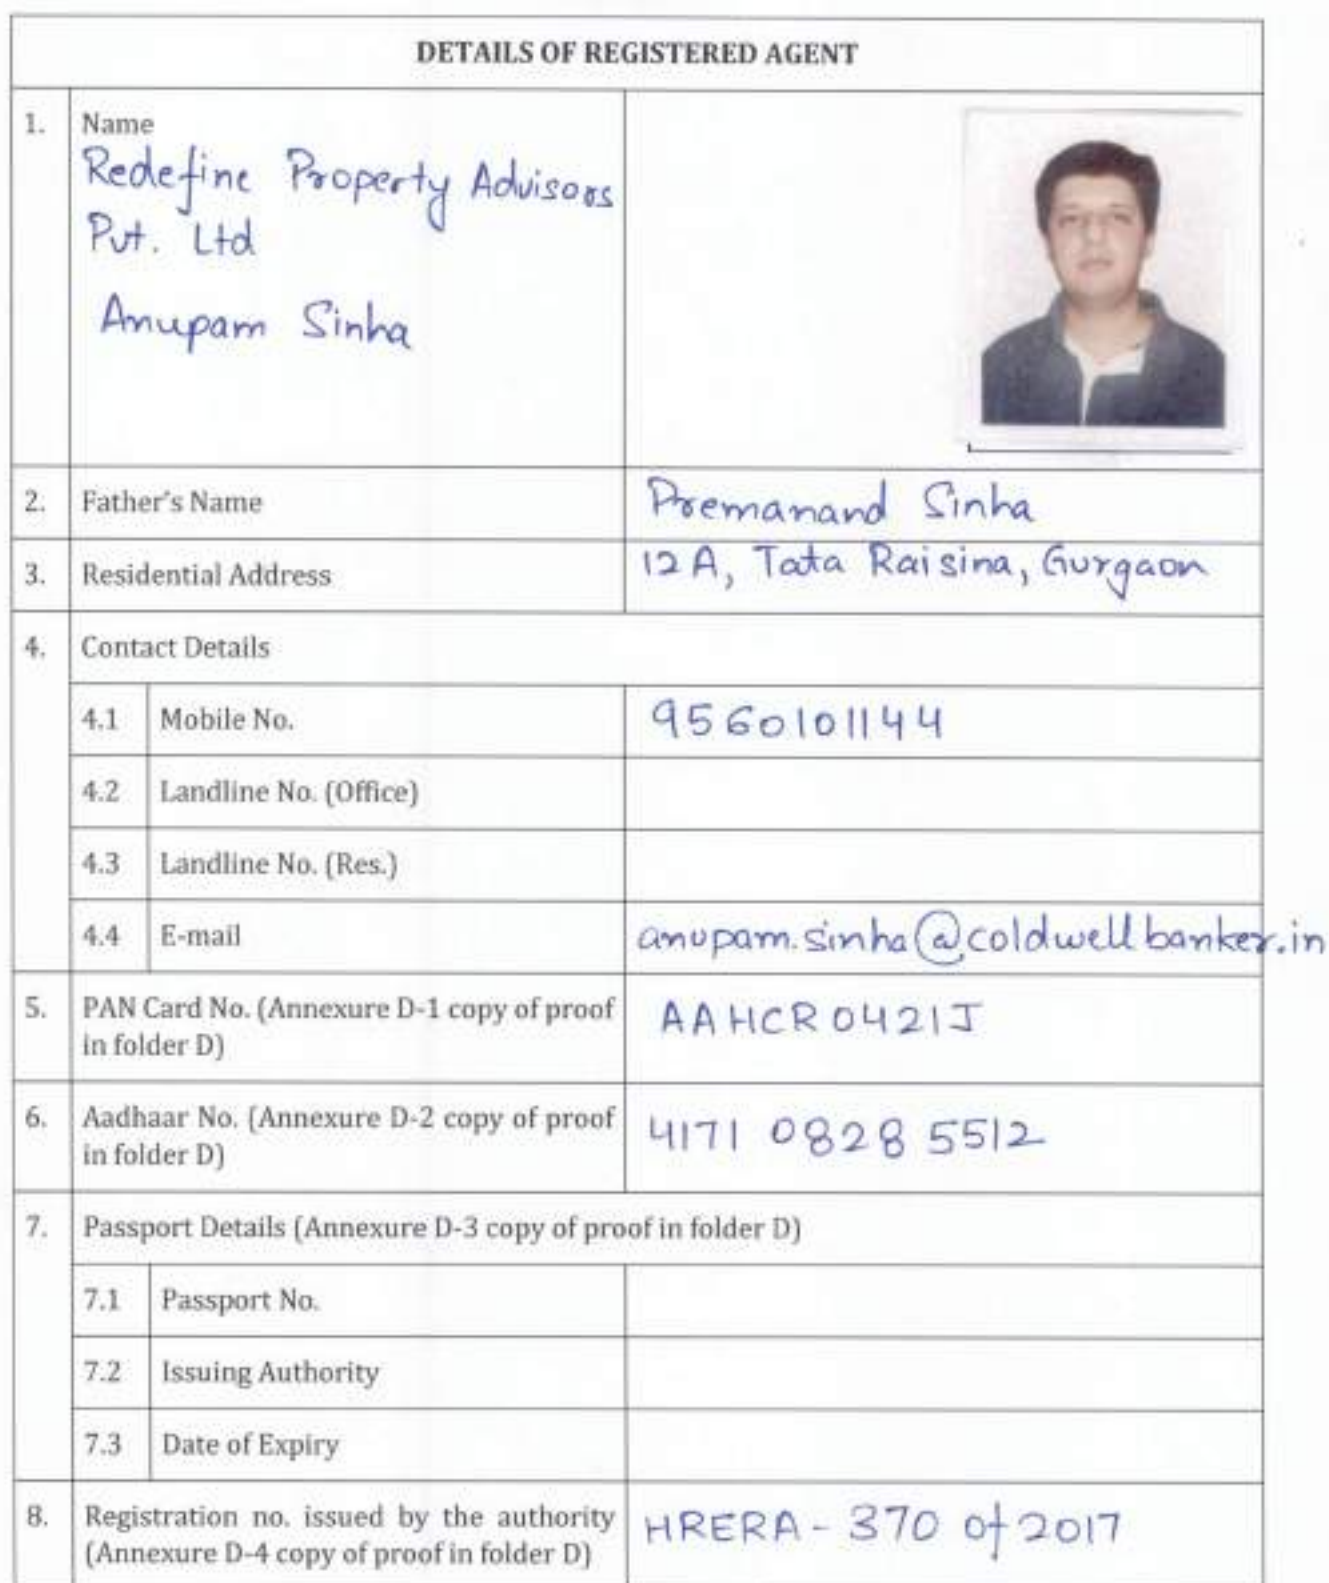 DETAILS OF REGISTERED AGENT
1. Name
Redefine Property Advisors
Pvt. Ltd
Anupam Sinha
2. Father's Name Premanand Sinha
3. Residential Address 12A, Tata Raisina, Gurgaon
4. Contact Details
4.1 Mobile No. 9560101144
4.2 Landline No. (Office)
4.3 Landline No. (Res.)
4.4 E-mail anupam.sinha@coldwellbanker.in
5. PAN Card No. (Annexure D-1 copy of proof
in folder D) AAHCR0421J
6. Aadhaar No. (Annexure D-2 copy of proof
in folder D) 4171 0828 5512
7. Passport Details (Annexure D-3 copy of proof in folder D)
7.1 Passport No.
7.2 Issuing Authority
7.3 Date of Expiry
8. Registration no. issued by the authority
(Annexure D-4 copy of proof in folder D) HRERA - 370 of 2017